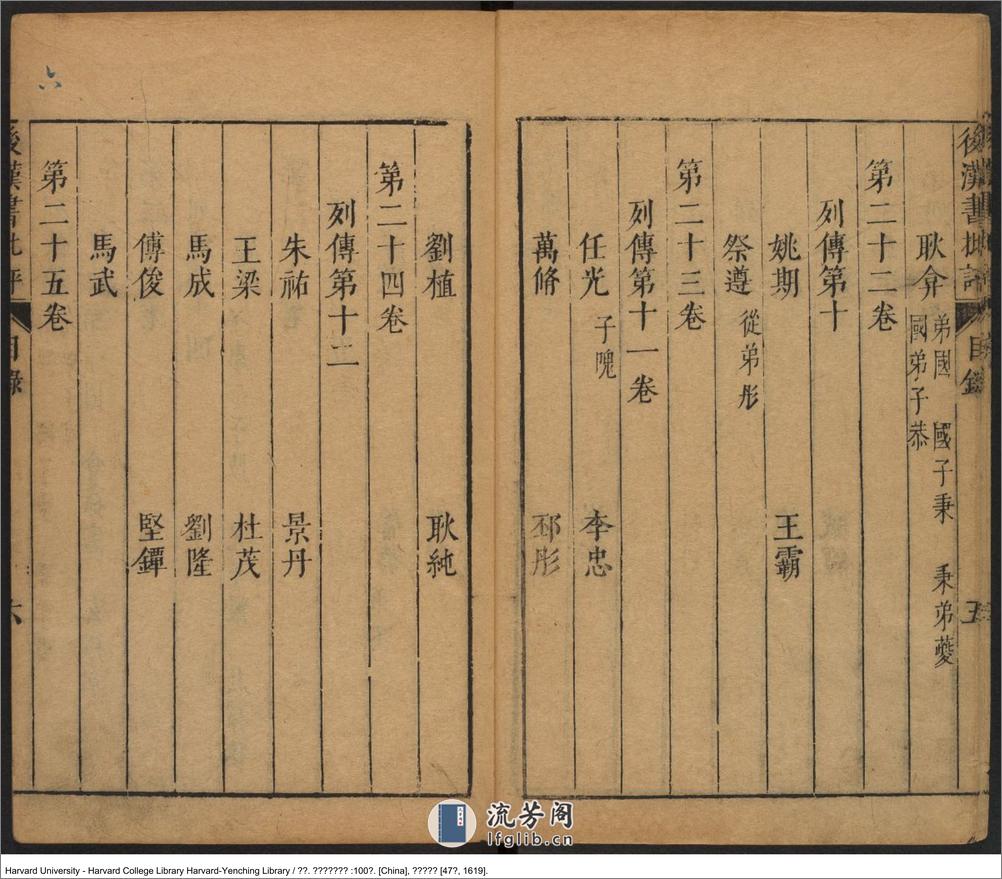 後漢書批評 目錄 五
耿弇 弟國 國子秉 秉弟夔
國弟子恭
第二十二卷
列傳第十
姚期 王霸
祭遵 從弟彤
第二十三卷
列傳第十一卷
任光 子隗 李忠
萬脩 邳彤
劉植 耿純
第二十四卷
列傳第十二
朱祐 景丹
王梁 杜茂
馬成 劉隆
傅俊 堅鐔
馬武
第二十五卷
後漢書批評 目錄 六
六
流芳阁
lfglib.cn
Harvard University - Harvard College Library Harvard-Yenching Library / ??. ??????? :100?. [China], ????? [47?, 1619].